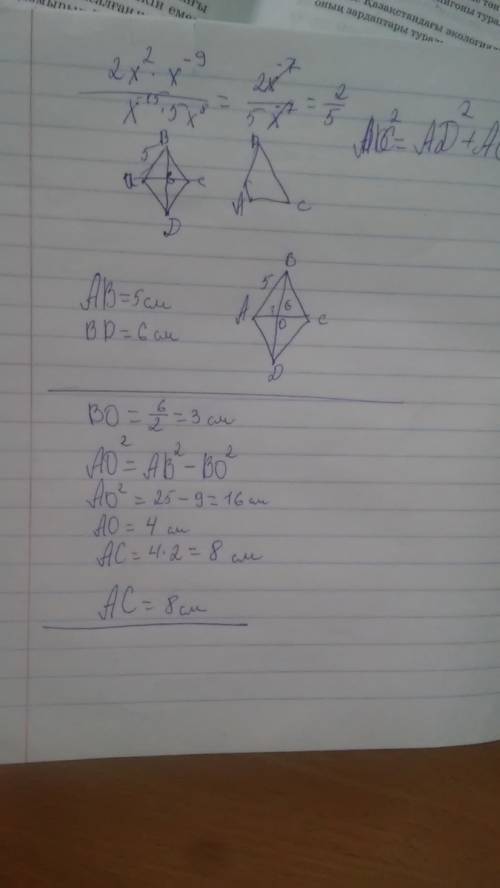 Қазақстандағы экология
оның зардаптары тура
2x² · x⁻⁹ / x⁻¹⁵ · 5x⁸ = 2x⁻⁷ / 5x⁻⁷ = 2/5
AC² = AD² + AC
B
5
C
D
B
A
C
B
5
A
6
O
C
D
AB = 5 см
BD = 6 см
BO = 6/2 = 3 см
AO² = AB² − BO²
AO² = 25 − 9 = 16 см
AO = 4 см
AC = 4 · 2 = 8 см
AC = 8 см